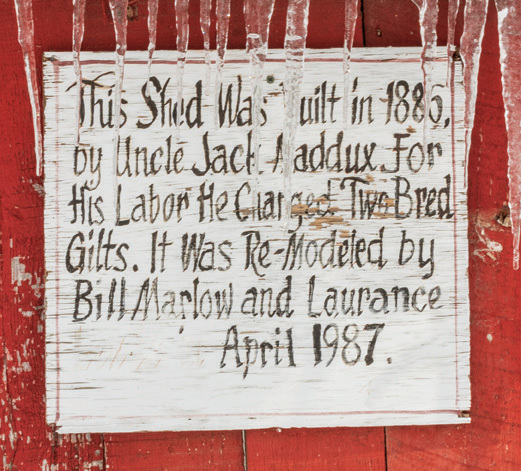 This Shed Was Built in 1886,
by Uncle Jack Maddux For
His Labor He Charged Two Bred
Gilts. It Was Re-Modeled by
Bill Marlow and Laurance
April 1987.